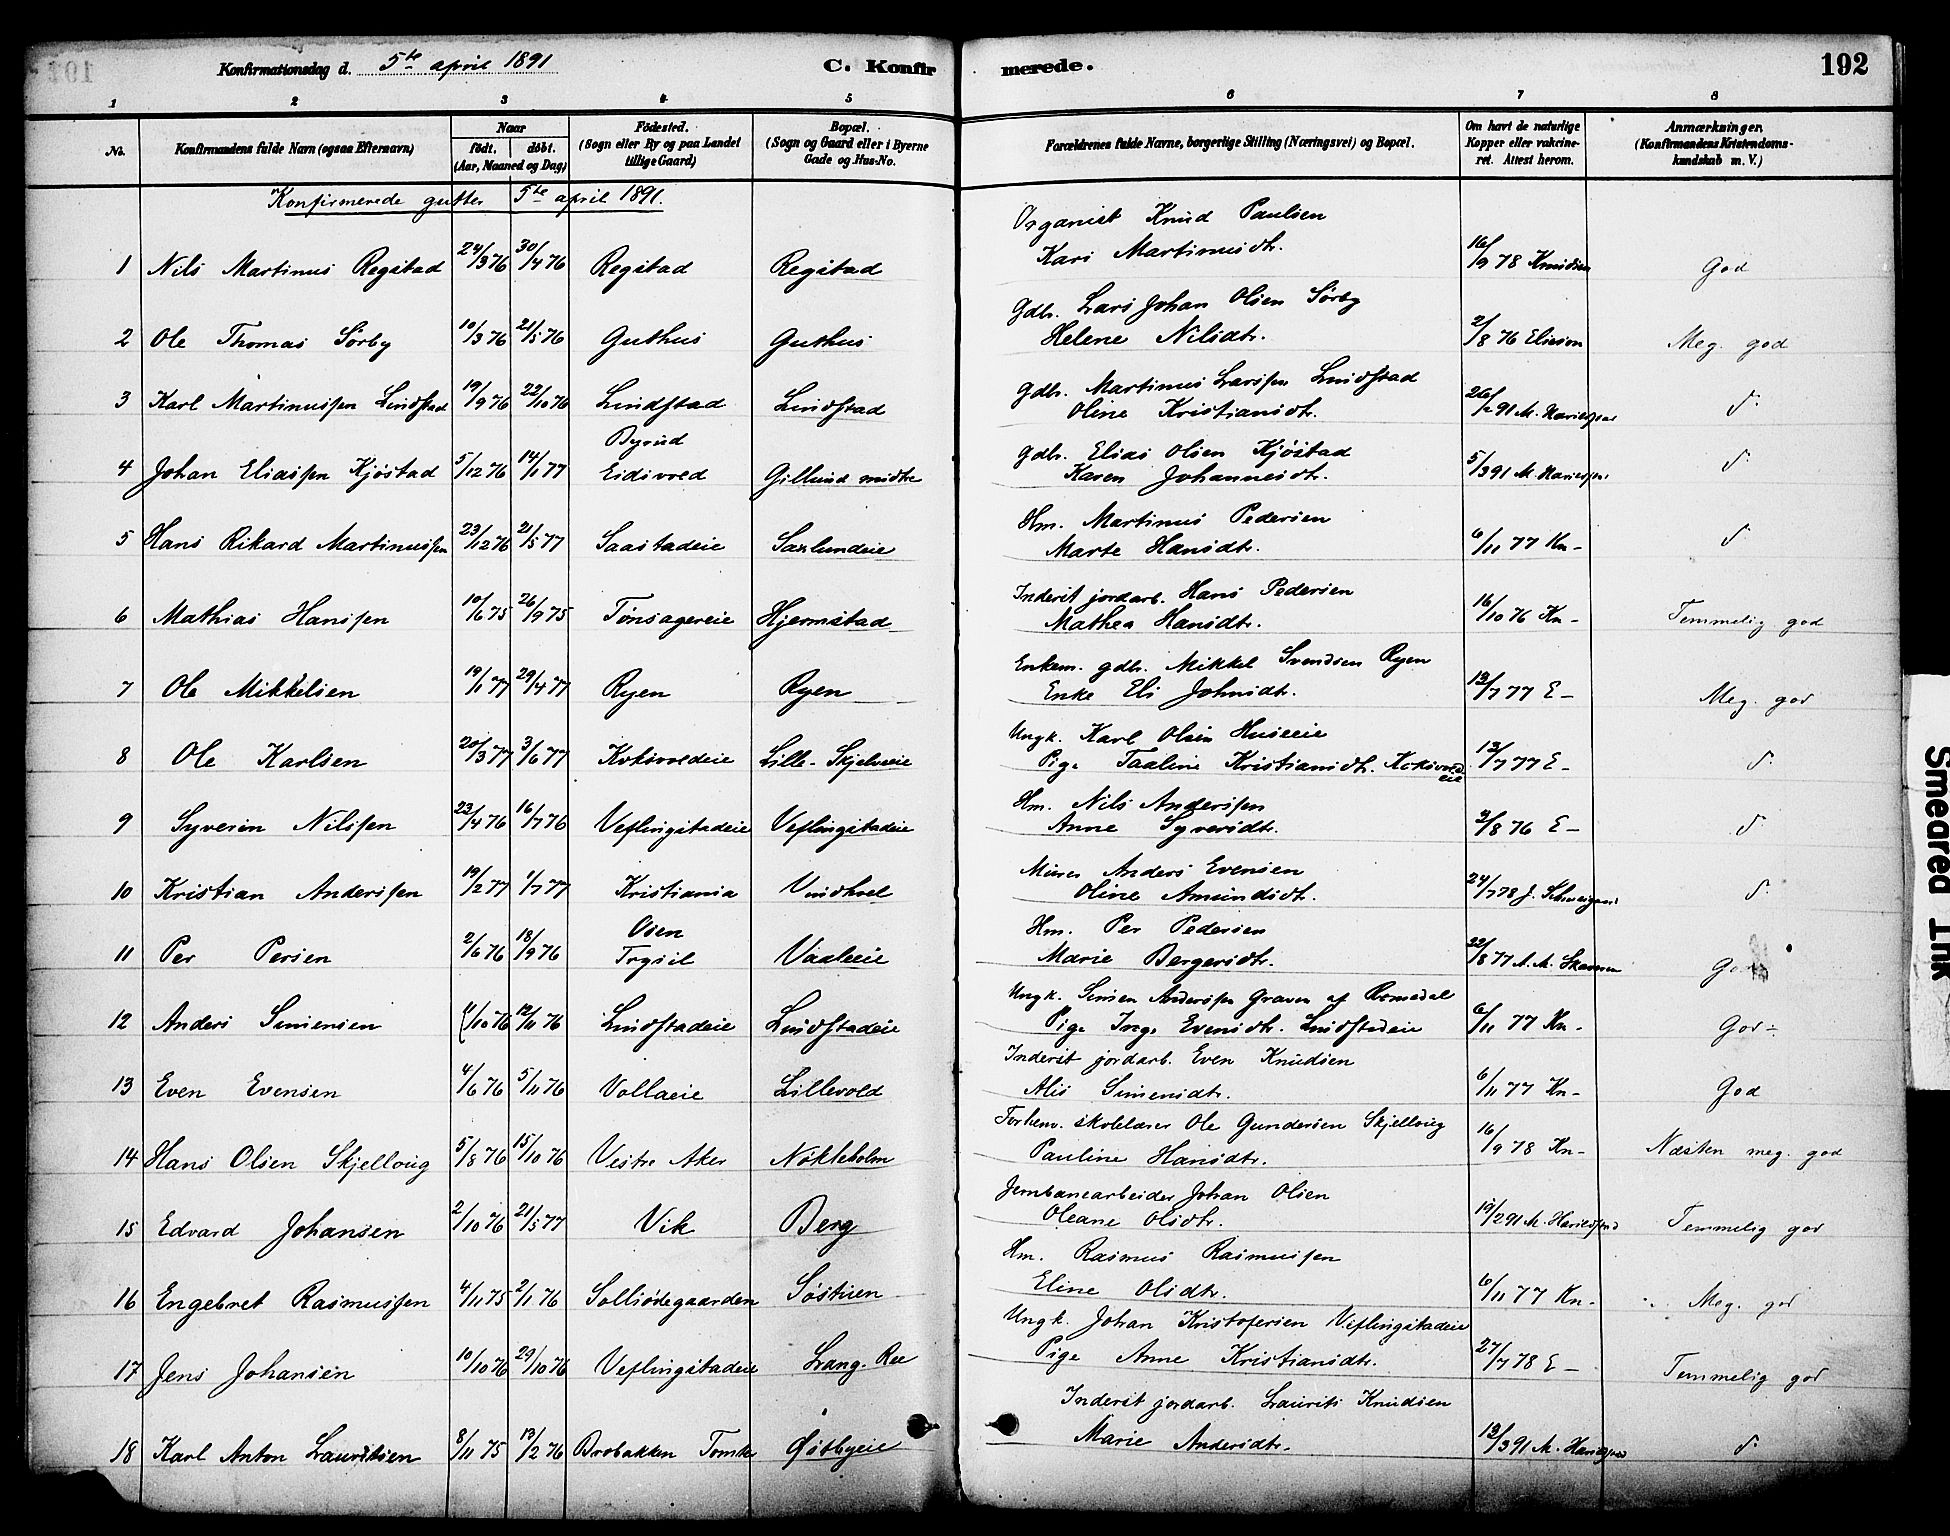 Konfirmationsdag d. 5te april 1891
C. Konfirmerede.
192
1 2 3 4 5 6 7 8
No.
Konfirmandens fulde Navn (ogsaa Efternavn)
Naar
født. døbt.
(Aar, Maaned og Dag)
Fødested.
(Sogn eller By og paa Landet
tillige Gaard)
Bopæl.
(Sogn og Gaard eller i Byerne
Gade og Hus-No.
Forældrenes fulde Navne, borgerlige Stilling (Næringsvei) og Bopæl.
Om havt de naturlige
Kopper eller vakcine-
ret. Attest herom.
Anmærkninger.
(Konfirmandens Kristendoms-
kundskab m. V.)
Konfirmerede gutter 5te april 1891.
Organist Knud Paulsen
1 Nils Martinus Regstad 24/3 76 30/4 76 Regstad Regstad Kari Martinusdtr. 16/9 78 Knudsen God
Gdbr. Lars Johan Olsen Sørby
2 Ole Thomas Sørby 10/3 76 21/5 76 Guthus Guthus Helene Nilsdtr. 2/8 76 Meg. god
Gdbr. Martinus Larssen Lindstad
3 Karl Martinussen Lindstad 19/9 76 22/10 76 Lindstad Lindstad Oline Kristiansdtr. 26/2 91 d.
Byrud
Gdbr. Elias Olsen Kjøstad
4 Johan Eliassen Kjøstad 5/12 76 14/1 77 Eidsvold Gillund midtre Karen Johannesdtr. 5/3 91 d.
Hm. Martinus Pedersen
5 Hans Rikard Martinussen 23/12 76 21/5 77 Saastadeie Saxlundeie Marte Hansdtr. 6/11 77 Kn- d
Inderst jordarb. Hans Pedersen
6 Mathias Hanssen 10/6 75 26/9 75 Tønsagereie Hjermstad Mathea Hansdtr. 16/10 76 Kn- Temmelig god
Enkem. gdbr. Mikkel Svendsen Ryen
7 Ole Mikkelsen 19/1 77 29/4 77 Ryen Ryen Enke Eli Johnsdtr. 13/7 77 E- Meg. god
Ungk. Karl Olsen Huseeie
8 Ole Karlsen 20/3 77 3/6 77 Koksvoldeie Lille-Skjelveie Pige Taaline Kristiansdtr. Koksvoldeie 13/7 77 E- d.
Hm. Nils Anderssen
9 Syversen Nilssen 23/4 76 16/7 76 Veflingstadeie Veflingstadeie Anne Syversdtr. 2/8 76 E- d.
Murer Anders Evensen
10 Kristian Anderssen 19/2 77 1/7 77 Kristiania Vindhvel Oline Amundsdtr. 24/7 78 d.
Osen
Hm. Per Pedersen
11 Per Persen 2/6 76 18/9 76 Trysil Vaaleeie Marie Bergersdtr. 22/8 77 God
Ungk. Simen Anderssen Graven af Romedal
12 Anders Simensen 1/10 76 12/11 76 Lindstadeie Lindstadeie Pige Inge Evensdtr. Lindstadeie 6/11 77 Kn- God-
Inderst jordarb. Even Knudsen
13 Even Evensen 4/6 76 5/11 76 Vollaeie Lillevold Alis Simensdtr. 6/11 77 Kn- God
Forhenv. skolelærer Ole Gundersen Skjellvig
14 Hans Olsen Skjellvig 5/8 76 15/10 76 Vestre Aker Nøkleholm Pauline Hansdtr. 16/9 78 Kn- Næsten meg. god
Jernbanearbeider Johan Olsen
15 Edvard Johansen 2/10 76 21/5 77 Vik Berg Oleane Olsdtr. 19/2 91 Temmelig god
Hm. Rasmus Rasmussen
16 Engebret Rasmussen 4/11 75 2/1 76 Sollisødegaarden Søstuen Eline Olsdtr. 6/11 77 Kn- Meg. god
Ungk. Johan Kristofersen Veflingstadeie
17 Jens Johansen 10/10 76 29/10 76 Veflingstadeie Lang-Ree Pige Anne Kristiansdtr. 27/7 78 E- Temmelig god
Inderst jordarb. Laurits Knudsen
18 Karl Anton Lauritsen 8/11 75 13/2 76 Brobakken Tomter Østbyeie Marie Andersdtr. 12/3 91 d.
Smeared Ink